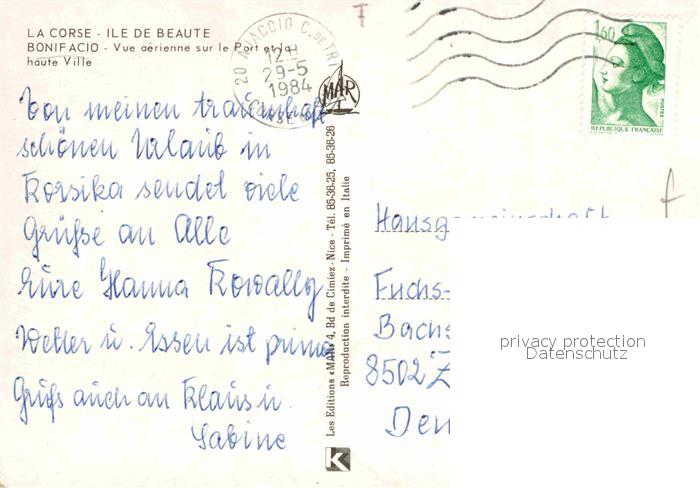 LA CORSE - ILE DE BEAUTE
BONIFACIO - Vue aérienne sur le Port et la
haute Ville
20 AJACCIO C. DE TRI
12H
29-5
1984
CORSE
MAR
1,60
POSTES
REPUBLIQUE FRANÇAISE
Von meinen traumhaft
schönen Urlaub in
Korsika sendet viele
Grüße an Alle
Eure Hanna Kowally
Wetter u. Essen ist prima
Gruß auch an Klaus u.
Sabine
Les Editions «MAR» 4, Bd de Cimiez - Nice - Tél. 85-36-25, 85-36-26
Reproduction interdite - Imprimé en Italie
K
Fuchs-
Bachs
8502 Z
privacy protection
Datenschutz